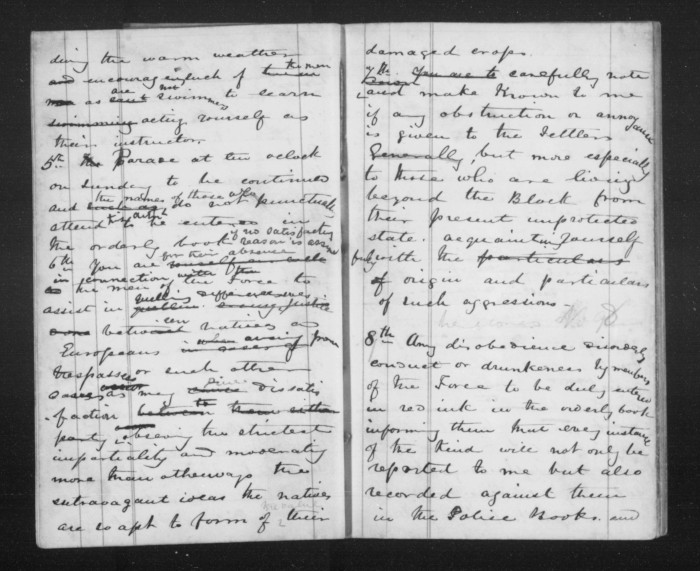 during the warm weather
and encourage such of the men
as are not swimmers to learn
swimming acting yourself as
their instructor.
5th The Parade at ten oclock
on sunday to be continued
and the names of those who do not punctually
attend to be entered in
the orderly book if no satisfactory reason is assigned
for their absence
6th You are
in connection with the
the men of the Force to
assist in settling differences
between natives and
Europeans in cases of from
trespasses or such other
cases as may cause dissatis
faction between them either
party observing the strictest
impartiality and moderating
more than otherways the
extravagant ideas the natives
are so apt to form of their
damaged crops.
7th You are to carefully note
and make Known to me
if any obstruction or annoyance
is given to the Settlers
Generally, but more especially
to those who are living
beyond the Block from
their present unprotected
state. acquainting yourself
fully with the particulars
of origin and particulars
of such aggressions —
8th Any disobedience disorderly
conduct or drunkeness by members
of the Force to be duly entered
in red ink in the orderly book
informing them that every instance
of the Kind will not only be
reported to me but also
recorded against them
in the Police Books. and